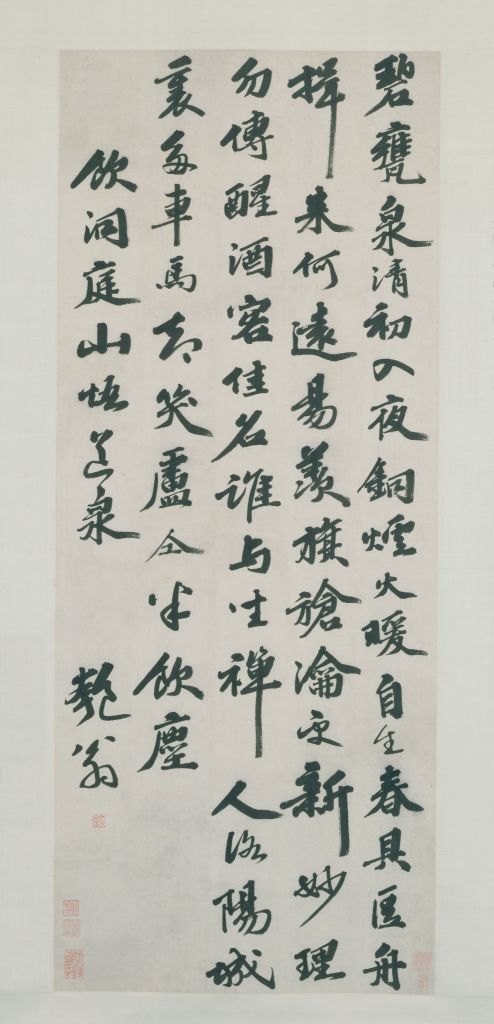 碧甕泉清初入夜銅爐火暖自生春具區舟
楫來何遠昜羨旗槍瀹更新妙理
勿傳醒酒客佳名誰與坐禪人洛陽城
裏多車馬却笑盧仝半飲塵
飲洞庭山悟道泉
匏翁